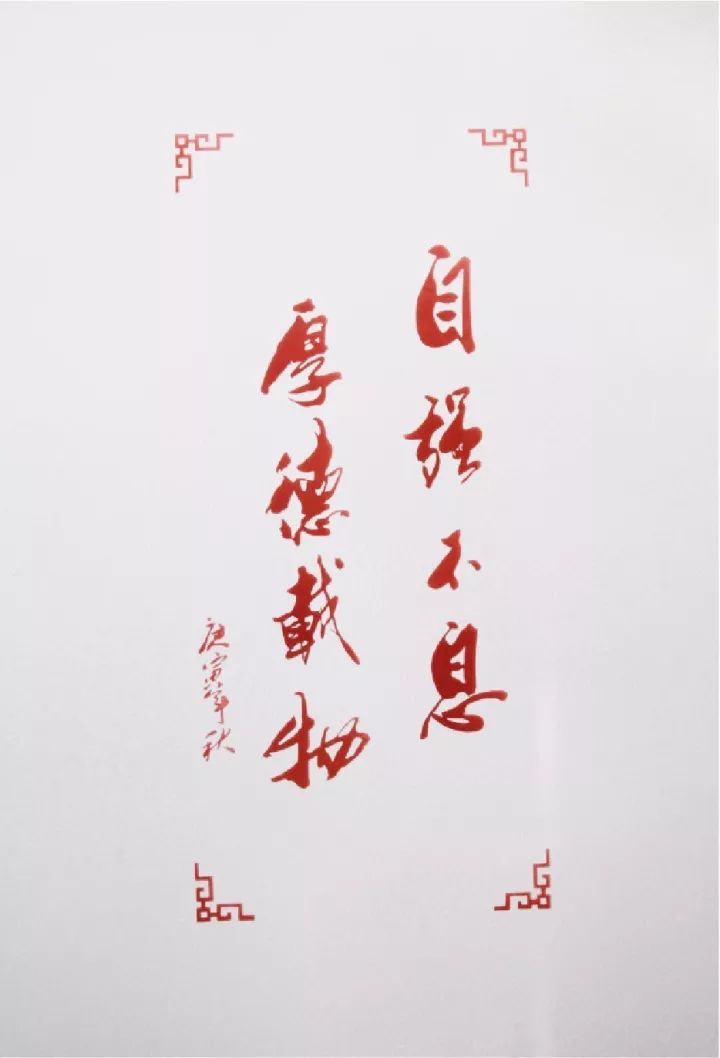 自强不息
厚德載物
庚寅年秋